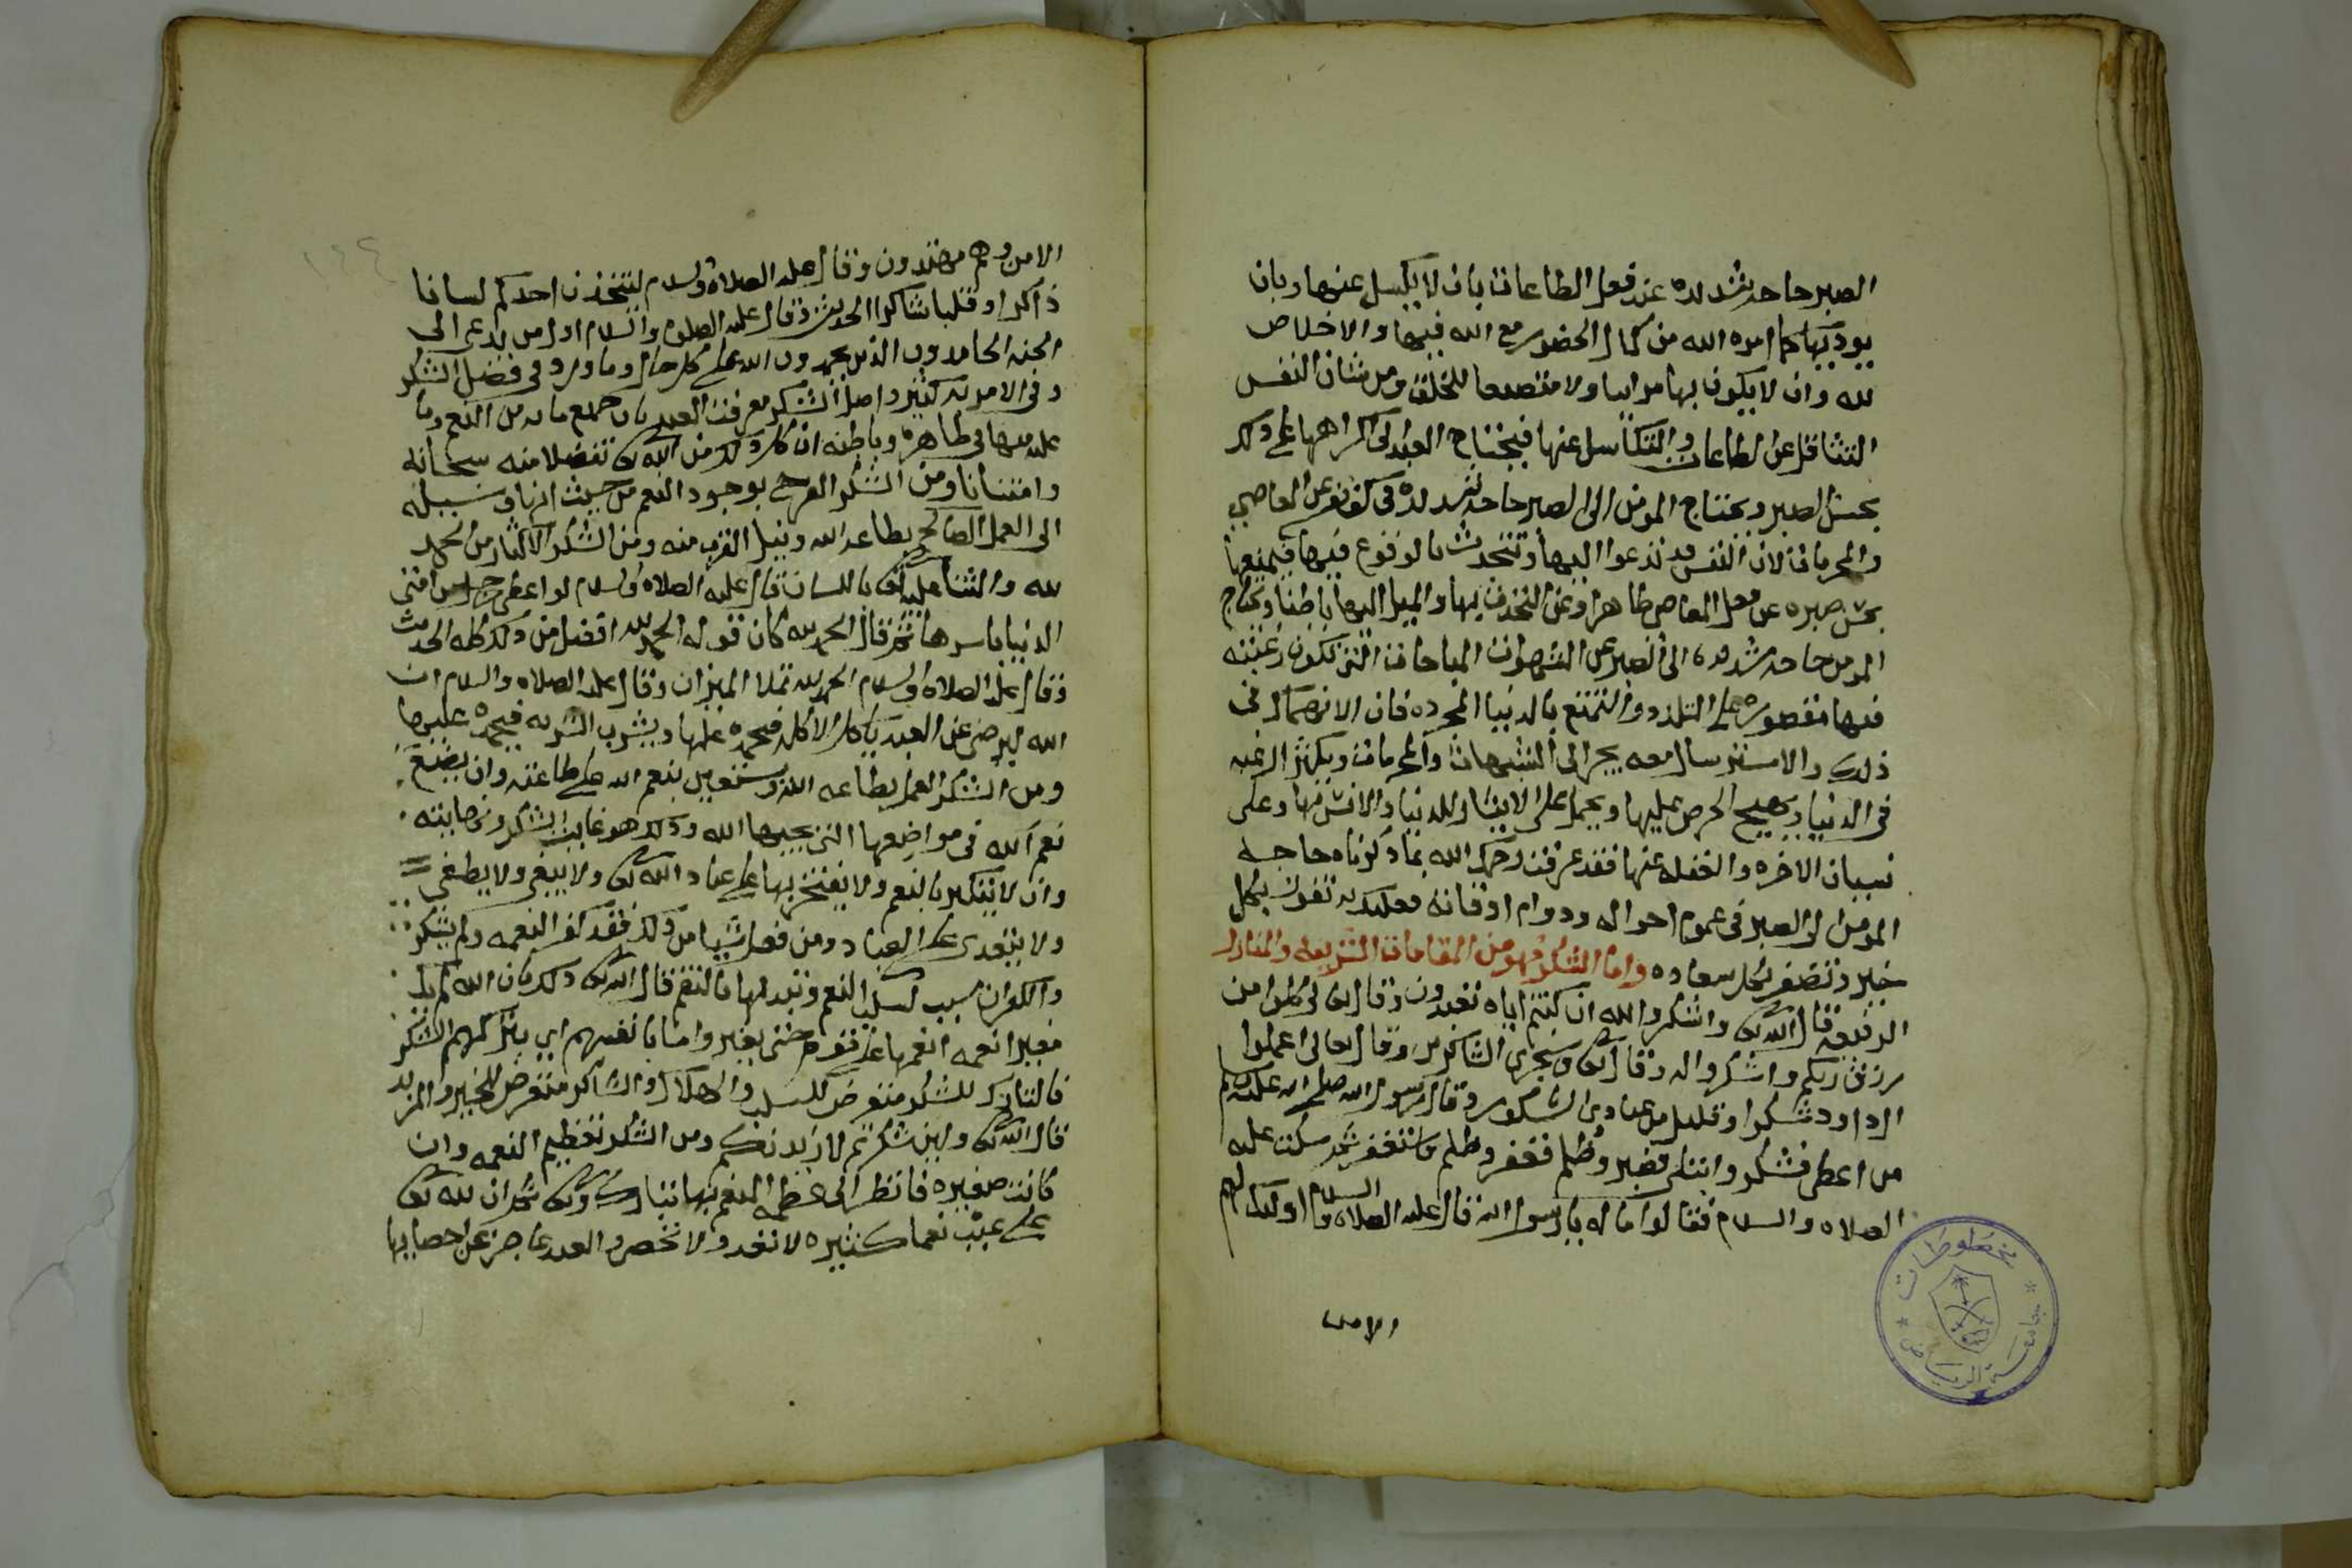 الصبر حاجه شديده عند فعل الطاعات بان لا يكسل عنها وبان
يوديها كما امره الله من كمال الحضور مع الله فيها والاخلاص
لله وان لا يكون بها مرايا ولا متصنعا للخلق ومن شان النفس
التثاقل عن الطاعات والتكاسل عنها فيحتاج العبد الى اكراهها على ذلك
بحسن الصبر ويحتاج المومن الى الصبر حاجه شديده في كف نفسه عن المعاصي
والمحرمات لان النفس قد تدعوا اليها وتتحدث بالوقوع فيها فيمنعها
بحسن صبره عن فعل المعاصي ظاهرا وعن التحدث بها والميل اليها باطنا ويحتاج
المومن حاجه شديده الى الصبر عن الشهوات المباحات التي تكون رغبته
فيها مقصوره على التلذذ والتمتع بالدنيا المجرده فان الانهماك في
ذلك والاسترسال معه يجر الى الشبهات والمحرمات ويكثر الرغبه
في الدنيا ويهيج الحرص عليها ويحمل على الايثار للدنيا والانس بها وعلى
نسيان الاخره والغفله عنها فقد عرفت رحمك الله بما ذكرناه حاجه
المومن الى الصبر في عموم احواله ودوام اوقاته فعليك به تفوز بكل
خير وتظفر بكل سعاده واما الشكر فهو من المقامات الشريفه والمنازل
الرفيعه قال الله تعالى واشكروا لله ان كنتم اياه تعبدون وقال تعالى كلوا من
رزق ربكم واشكروا له وقال تعالى وسنجزي الشاكرين وقال تعالى اعملوا
ال داود شكرا وقليل من عبادي الشكور وقال رسول الله صلى الله عليه وسلم
من اعطى فشكر وابتلى فصبر وظلم فغفر وظلم فاستغفر ثم سكت عليه
الصلاه والسلام فقالوا ما له يا رسول الله قال عليه الصلاه والسلام اوليك لهم
الامن
١٤٤
الامن وهم مهتدون وقال عليه الصلاة والسلام ليتخذن احدكم لسانا
ذاكرا وقلبا شاكرا الحديث وقال عليه الصلوة والسلام اول من يدعى الى
الجنه الحامدون الذين يحمدون الله على كل حال وما ورد في فضل الشكر
وفي الامر به كثير واصل الشكر معرفت العبد بان جميع ما به من النعم وما
عليه منها في ظاهره وباطنه ان كل ذلك من الله تعالى تفضلا منه سبحانه
وامتنانا ومن الشكر الفرح بوجود النعم من حيث انها وسيله
الى العمل الصالح بطاعة الله ونيل القرب منه ومن الشكر الاكثار من الحمد
لله والثنا عليه تعالى باللسان قال عليه الصلاه والسلام لو اعطي رجل من امتي
الدنيا باسرها ثم قال الحمد لله كان قوله الحمد لله افضل من ذلك كله الحديث
وقال عليه الصلاة والسلام الحمد لله تملا الميزان وقال عليه الصلاه والسلام ان
الله ليرضى عن العبد ياكل الاكله فيحمده عليها ويشرب الشربه فيحمده عليها
ومن الشكر العمل بطاعه الله وستعين بنعم الله على طاعته وان يضع
نعم الله في مواضعها التي يحبها الله وذلك هو غاية الشكر ونهايته
وان لا يتكبر بالنعم ولا يفتخر بها على عباد الله تعالى ولا يبغي ولا يطغي
ولا يتعدى على العباد ومن فعل شيا من ذلك فقد كفر النعمه ولم يشكر
والكفران سبب لسلب النعم وتبدلها بالنقم قال الله تعالى ذلك بان الله لم يك
مغيرا نعمه انعمها على قوم حتى يغيروا ما بانفسهم اي بتركهم الشكر
فالتارك للشكر متعرض للسلب والهلاك والشاكر متعرض للخير والمزيد
قال الله تعالى ولين شكرتم لازيدنكم ومن الشكر تعظيم النعمه وان
كانت صغيره فانظر الى عظمه المنعم بها تبارك وتعالى ثم ان لله تعالى
على عبده نعما كثيره لا تعد ولا تحصر والعبد عاجز عن احصايها
مخطوطات
جامعة الرياض